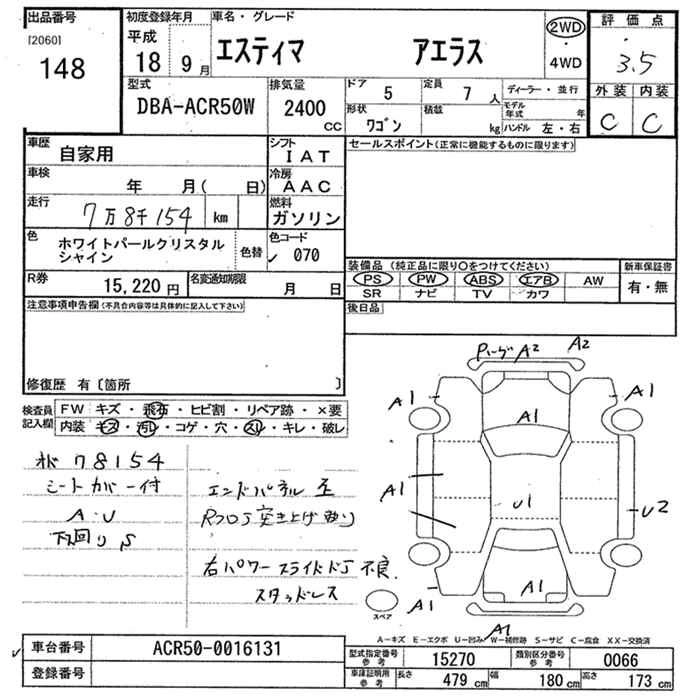 出品番号 初度登録年月 車名・グレード 評価点
[2060] 平成 エスティマ アエラス 2WD
148 18 9月 ・ 3.5
4WD
型式 排気量 ドア 5 定員 7人 ディーラー・並行 外装 内装
DBA-ACR50W 2400 CC 形状 ワゴン 積載 kg モデル年式 年 C C
ハンドル 左・右
車歴 自家用 シフト IAT セールスポイント(正常に機能するものに限ります)
車検 年 月( 日) 冷房 AAC
走行 7万8千154 km 燃料 ガソリン
色 ホワイトパールクリスタル 色替 色コード
シャイン 070
装備品(純正品に限り○をつけてください) 新車保証書
R券 15,220円 名変通知期限 月 日 PS PW ABS エアB AW 有・無
SR ナビ TV カワ
注意事項申告欄(不具合内容等は具体的に記入して下さい) 後日品
修復歴 有〔箇所 〕
検査員 FW キズ・飛石・ヒビ割・リペア跡・×要
記入欄 内装 キズ・汚レ・コゲ・穴・スレ・キレ・破レ
A2 A2
A1 A1 A1
78154
シートカバー付 エンドパネル
A1 U1 U2
A・U Rフロア突き上げ有り
下回りS
右パワースライドドア不良
スタッドレス
A1 A1
スペア
A1
A-キズ E-エクボ U-凹み W-補修跡 S-サビ C-腐食 XX-交換済
車台番号 ACR50-0016131 型式指定番号 参考 15270 類別区分番号 参考 0066
登録番号 車庫証明用 参考 長さ 479 cm 幅 180 cm 高さ 173 cm